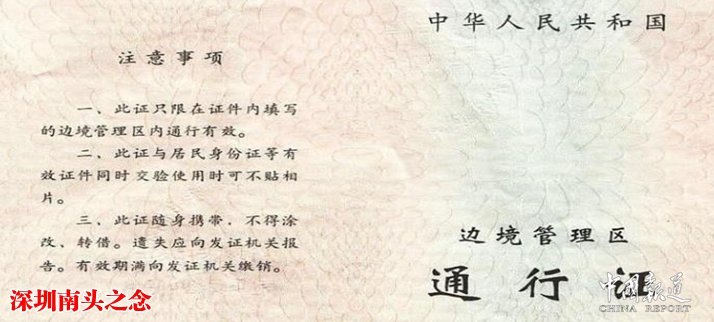 注意事项
一、此证只限在证件内填写
的边境管理区内通行有效。
二、此证与居民身份证等有
效证件同时交验使用时可不贴相
片。
三、此证随身携带，不得涂
改、转借。遗失应向发证机关报
告。有效期满向发证机关缴销。
深圳南头之念
中华人民共和国
边境管理区
通行证
中国报道
CHINA REPORT